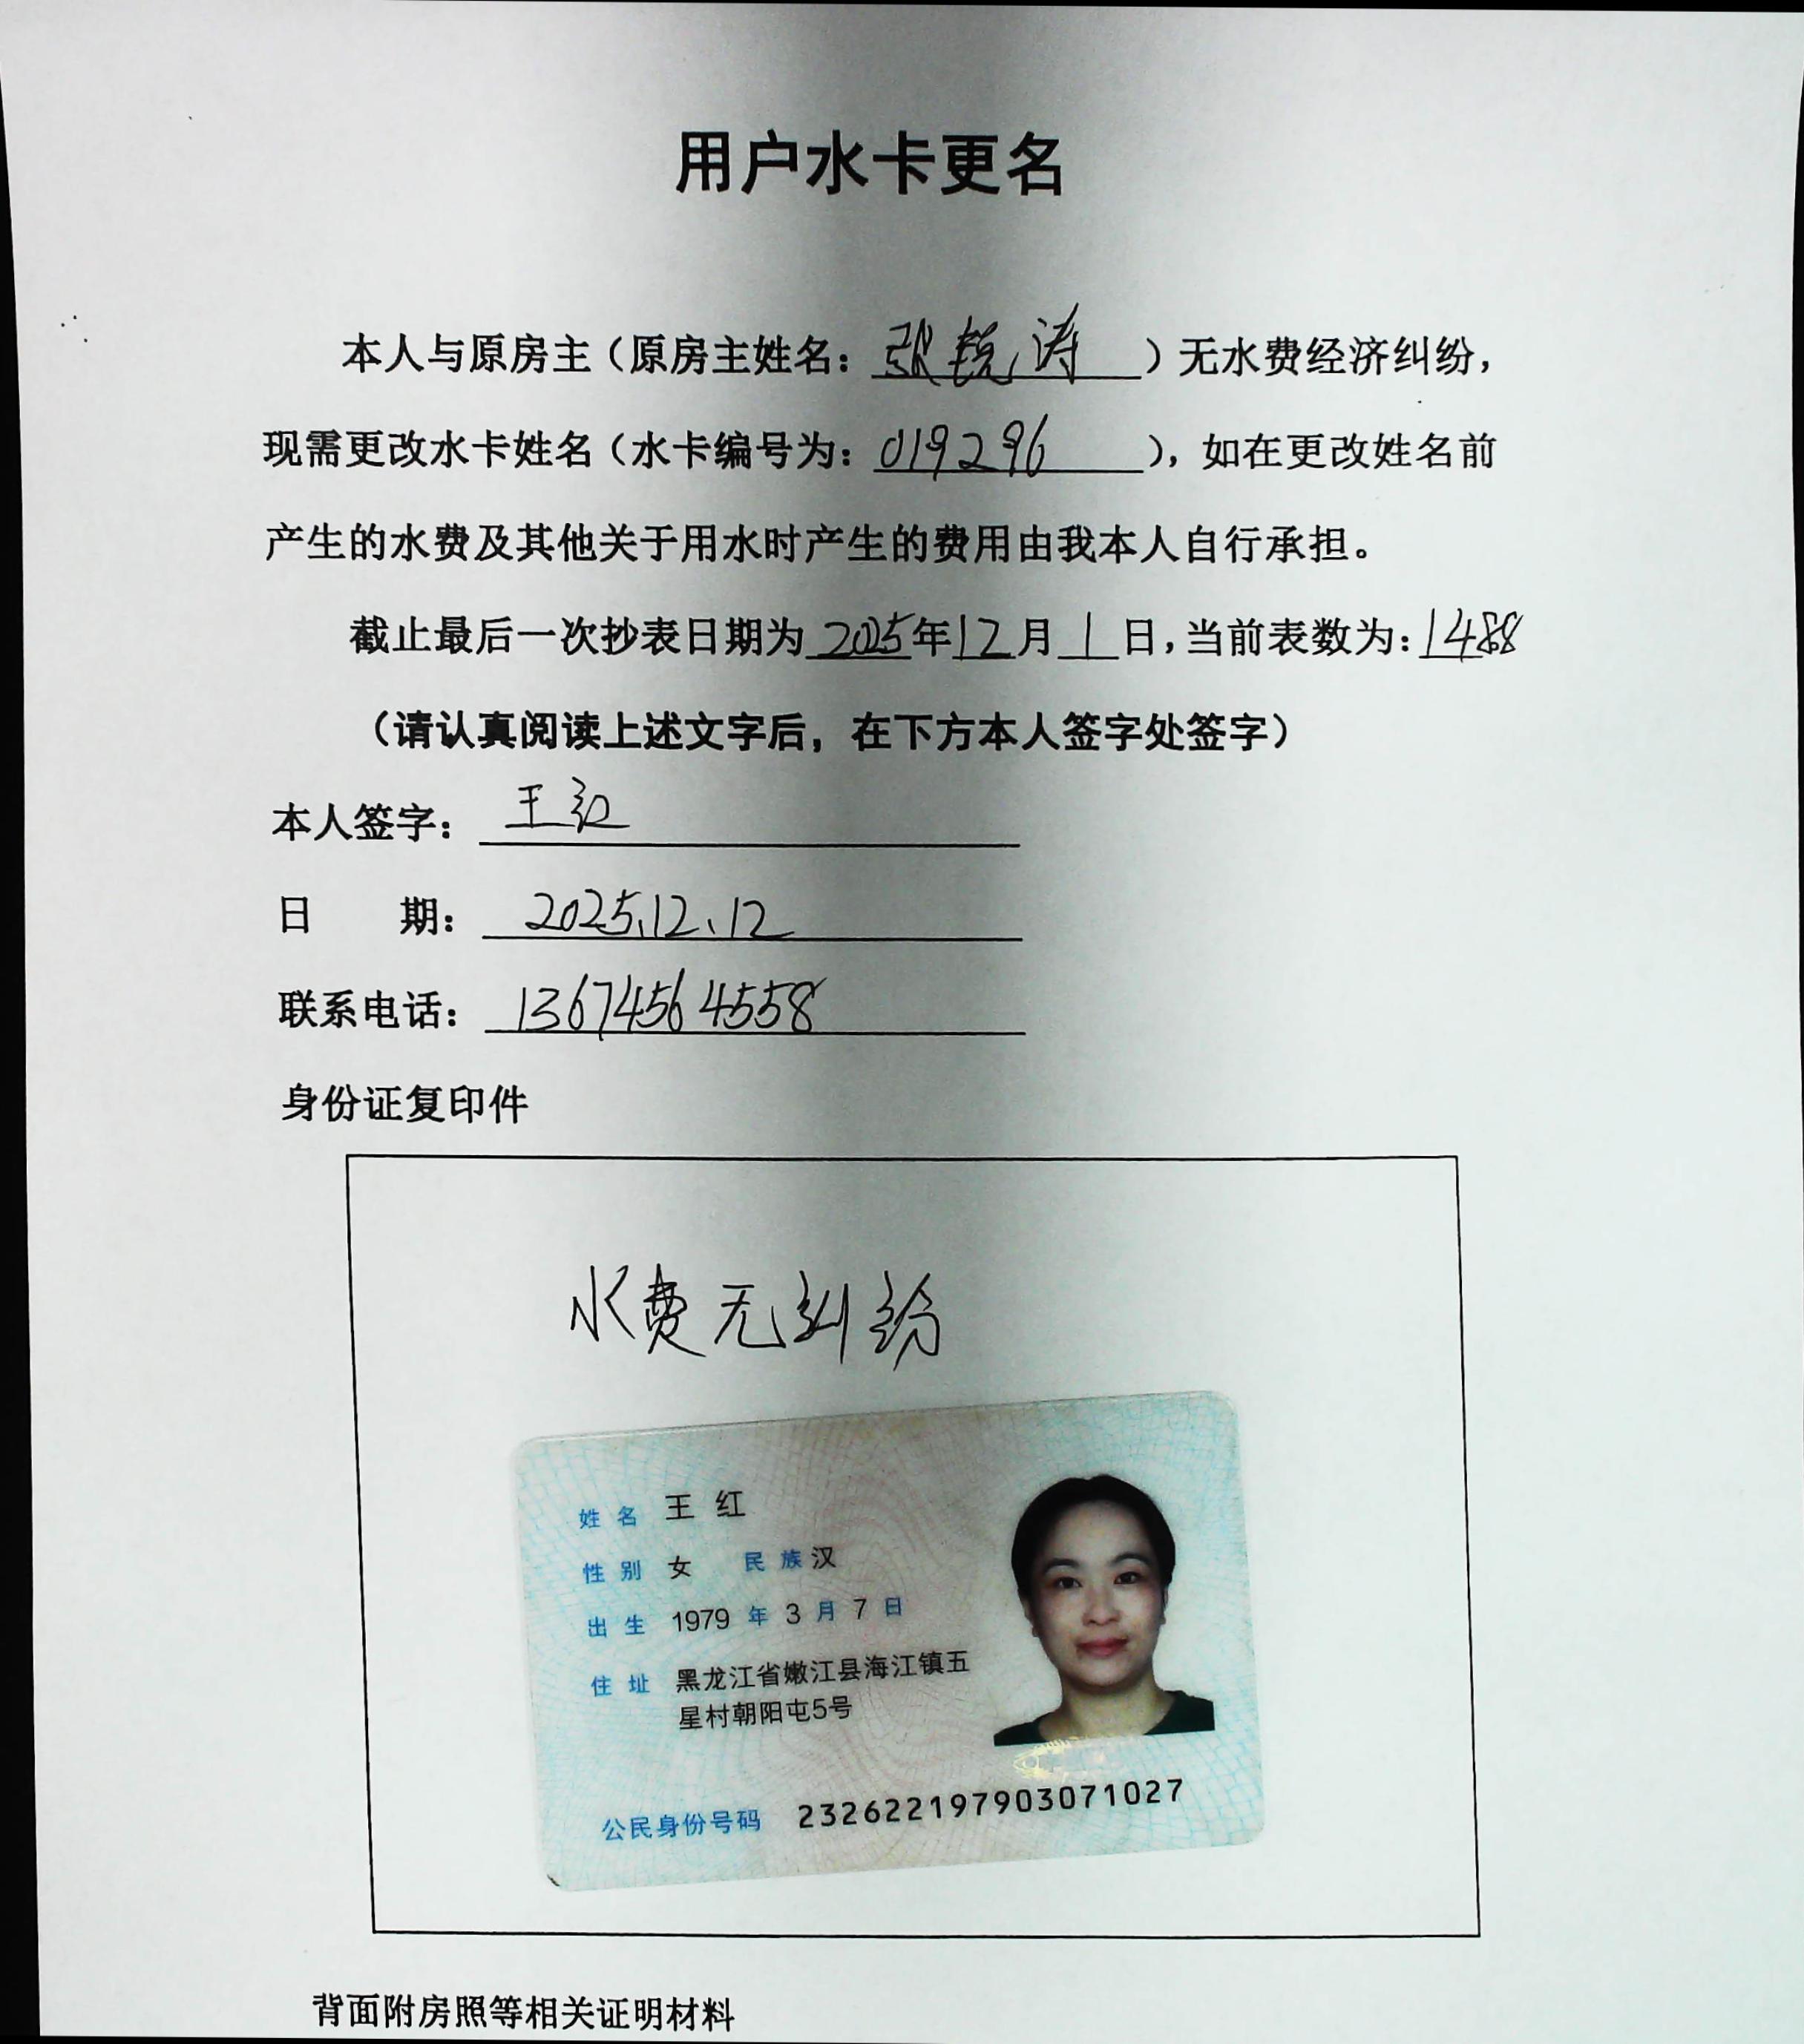 用户水卡更名
本人与原房主（原房主姓名：张锐涛）无水费经济纠纷，
现需更改水卡姓名（水卡编号为：019296），如在更改姓名前
产生的水费及其他关于用水时产生的费用由我本人自行承担。
截止最后一次抄表日期为2025年12月1日，当前表数为：1488
（请认真阅读上述文字后，在下方本人签字处签字）
本人签字：王红
日 期：2025.12.12
联系电话：13674564558
身份证复印件
水费无纠纷
姓名 王红
性别 女 民族 汉
出生 1979 年 3 月 7 日
住址 黑龙江省嫩江县海江镇五
星村朝阳屯5号
公民身份号码 232622197903071027
背面附房照等相关证明材料